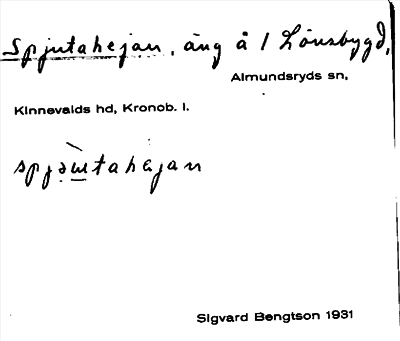 Spjutahejan, äng å 1 Lönsbygd,
Almundsryds sn,
Kinnevalds hd, Kronob. l.
Sigvard Bengtson 1931